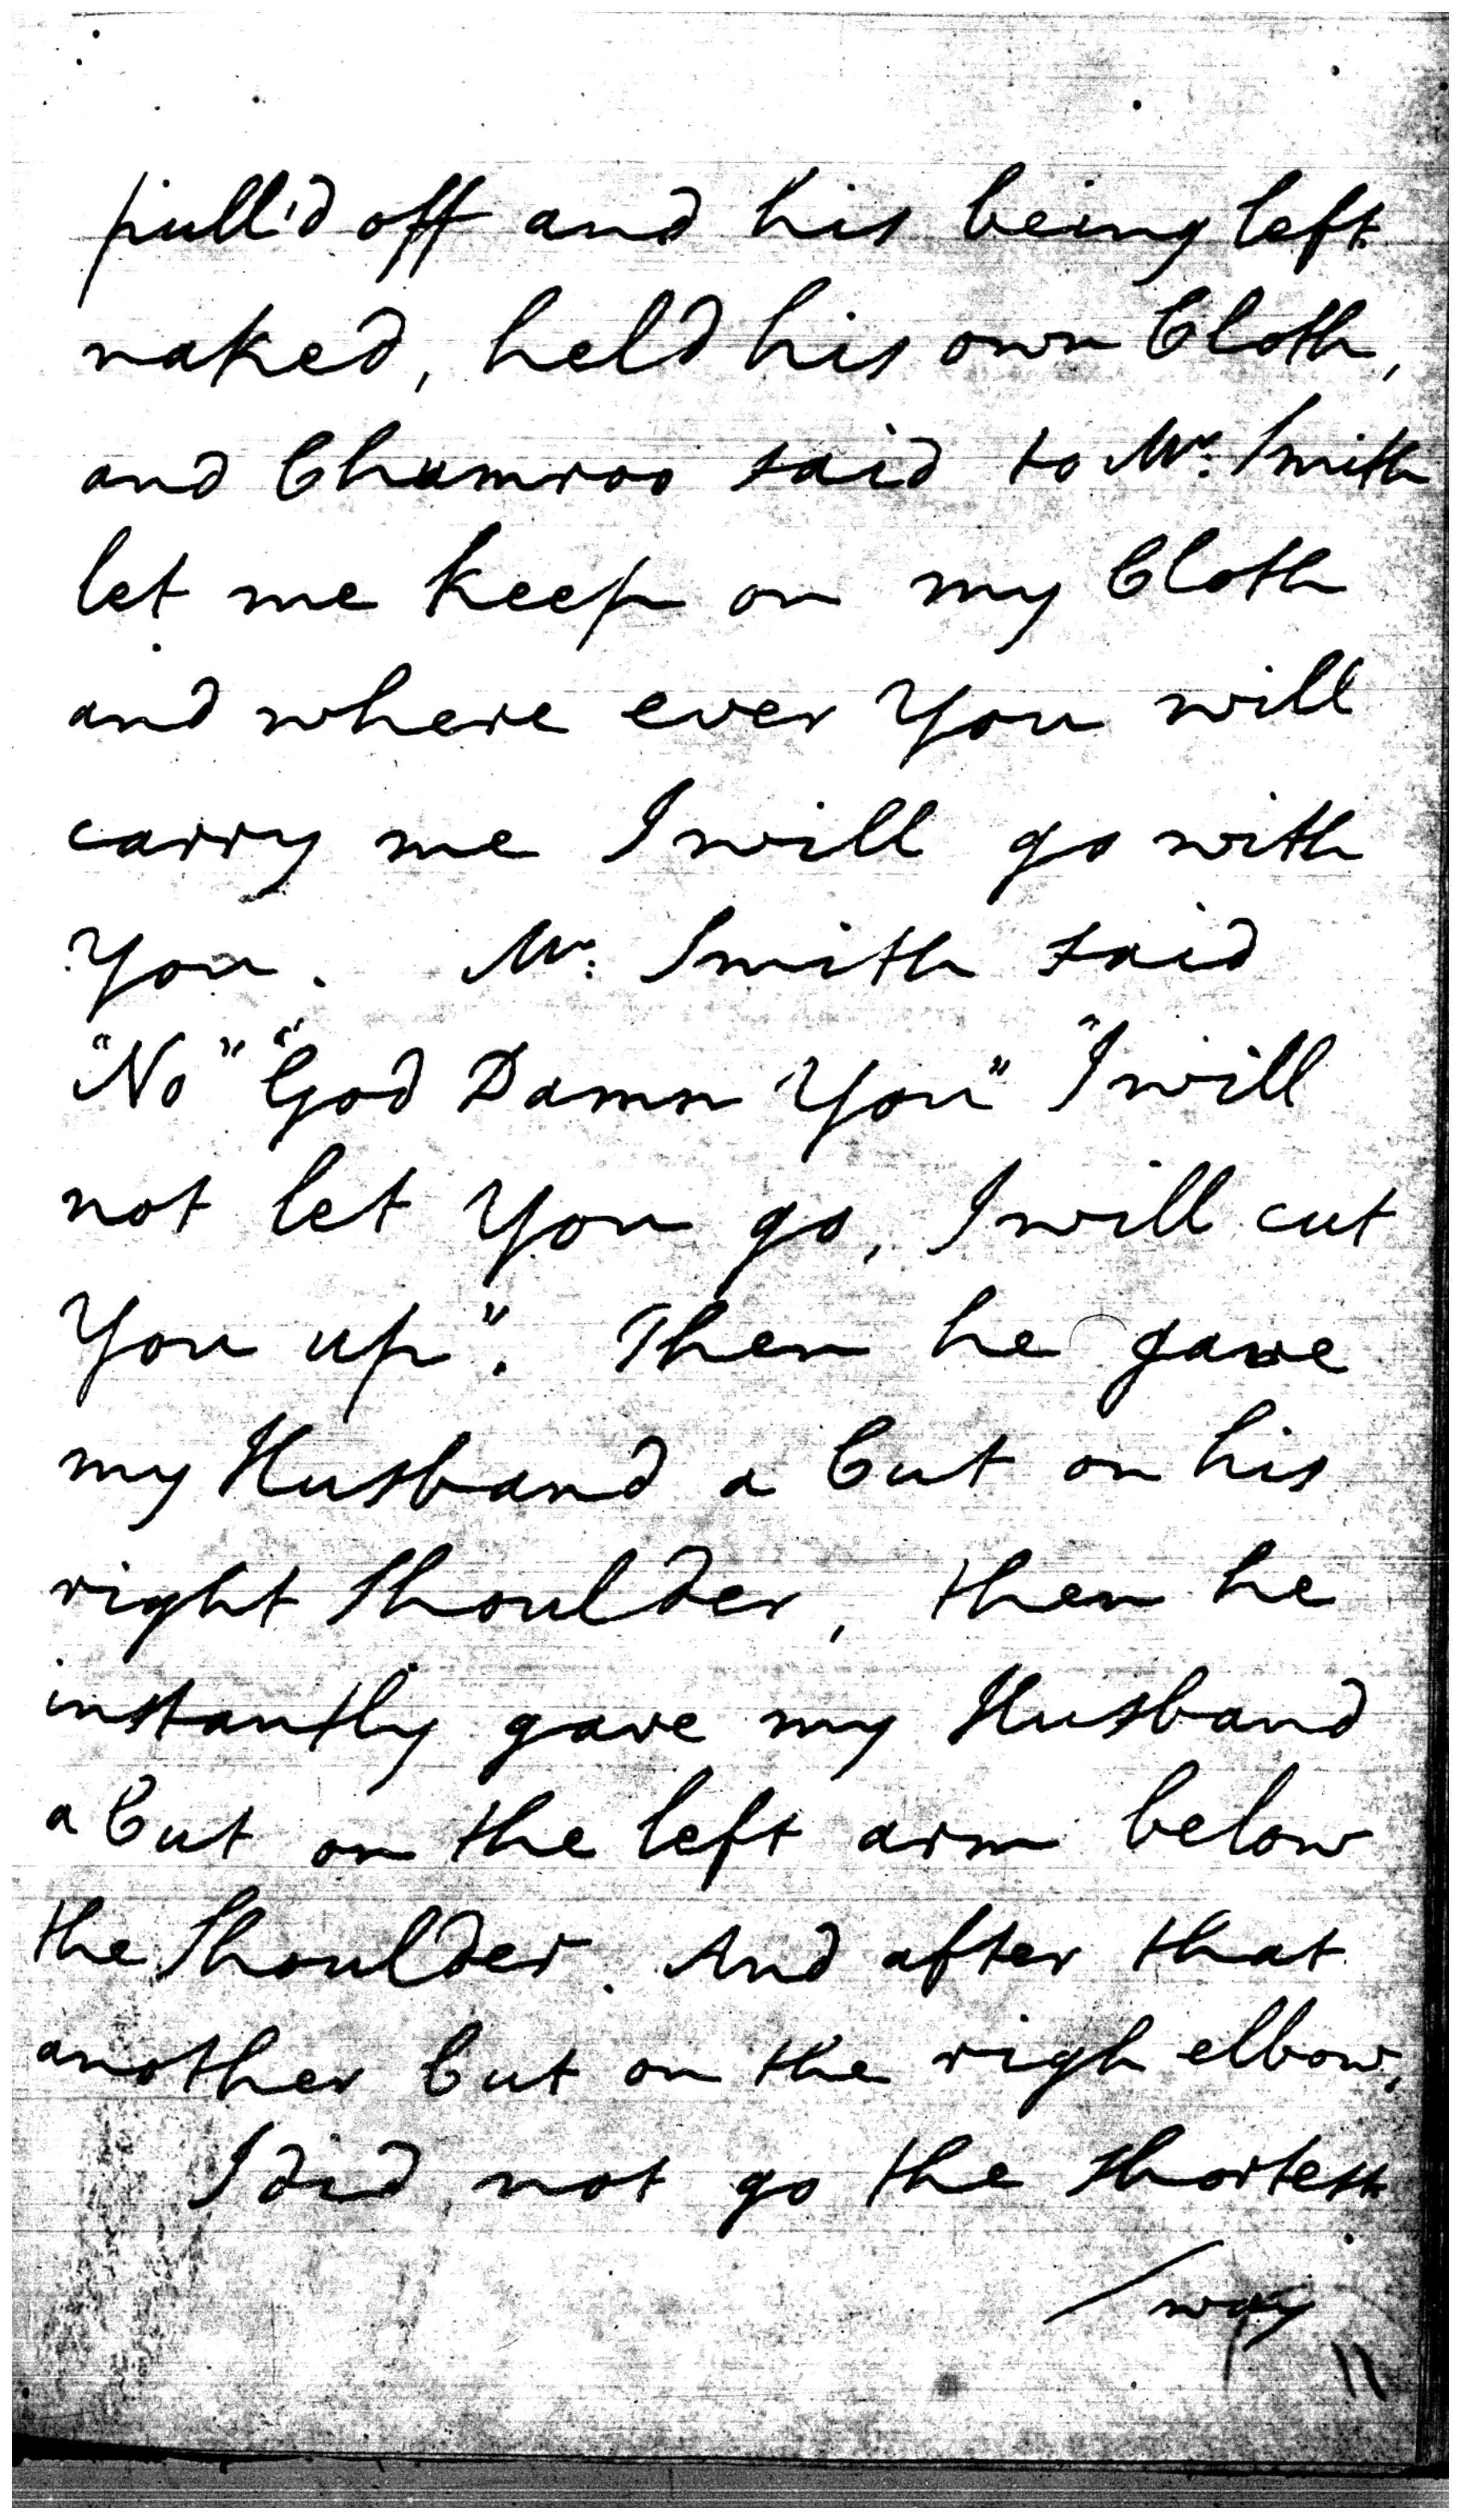 pull'd off and his being left
naked, held his own Cloth,
and Chamroo said to Mr: Smith
let me keep on my Cloth
and where ever You will
carry me I will go with
You. Mr: Smith said
"No" "God Damn You" "I will
not let You go, I will cut
You up". Then he gave
my Husband a Cut on his
right Shoulder, then he
instantly gave my Husband
a Cut on the left arm below
the Shoulder. And after that
another Cut on the righ elbow,
I did not go the shortest
/way
11